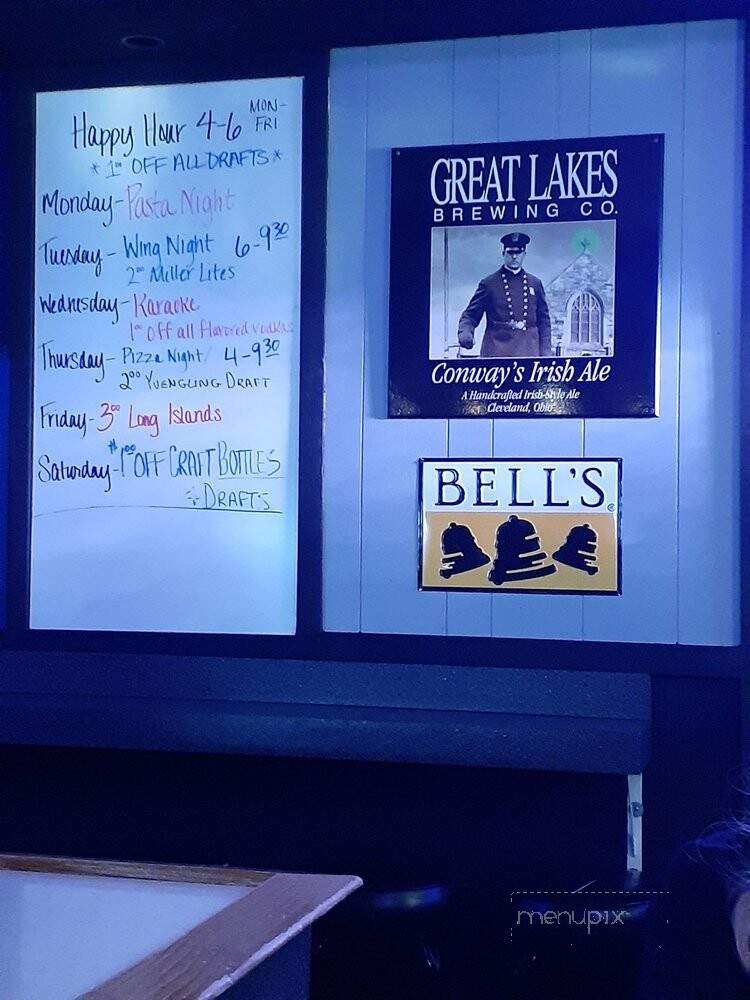 Happy Hour 4-6 MON-FRI
* 1.00 OFF ALL DRAFTS *
Monday - Pasta Night
Tuesday - Wing Night 6-9:30
2.00 Miller Lites
Wednesday - Karaoke
1.00 off all flavored vodkas
Thursday - Pizza Night / 4-9:30
2.00 YUENGLING DRAFT
Friday - 3.00 Long Islands
Saturday - $1.00 OFF CRAFT BOTTLES
+ DRAFTS
GREAT LAKES
BREWING CO.
Conway's Irish Ale
A Handcrafted Irish-Style Ale
Cleveland, Ohio
BELL'S
menupix